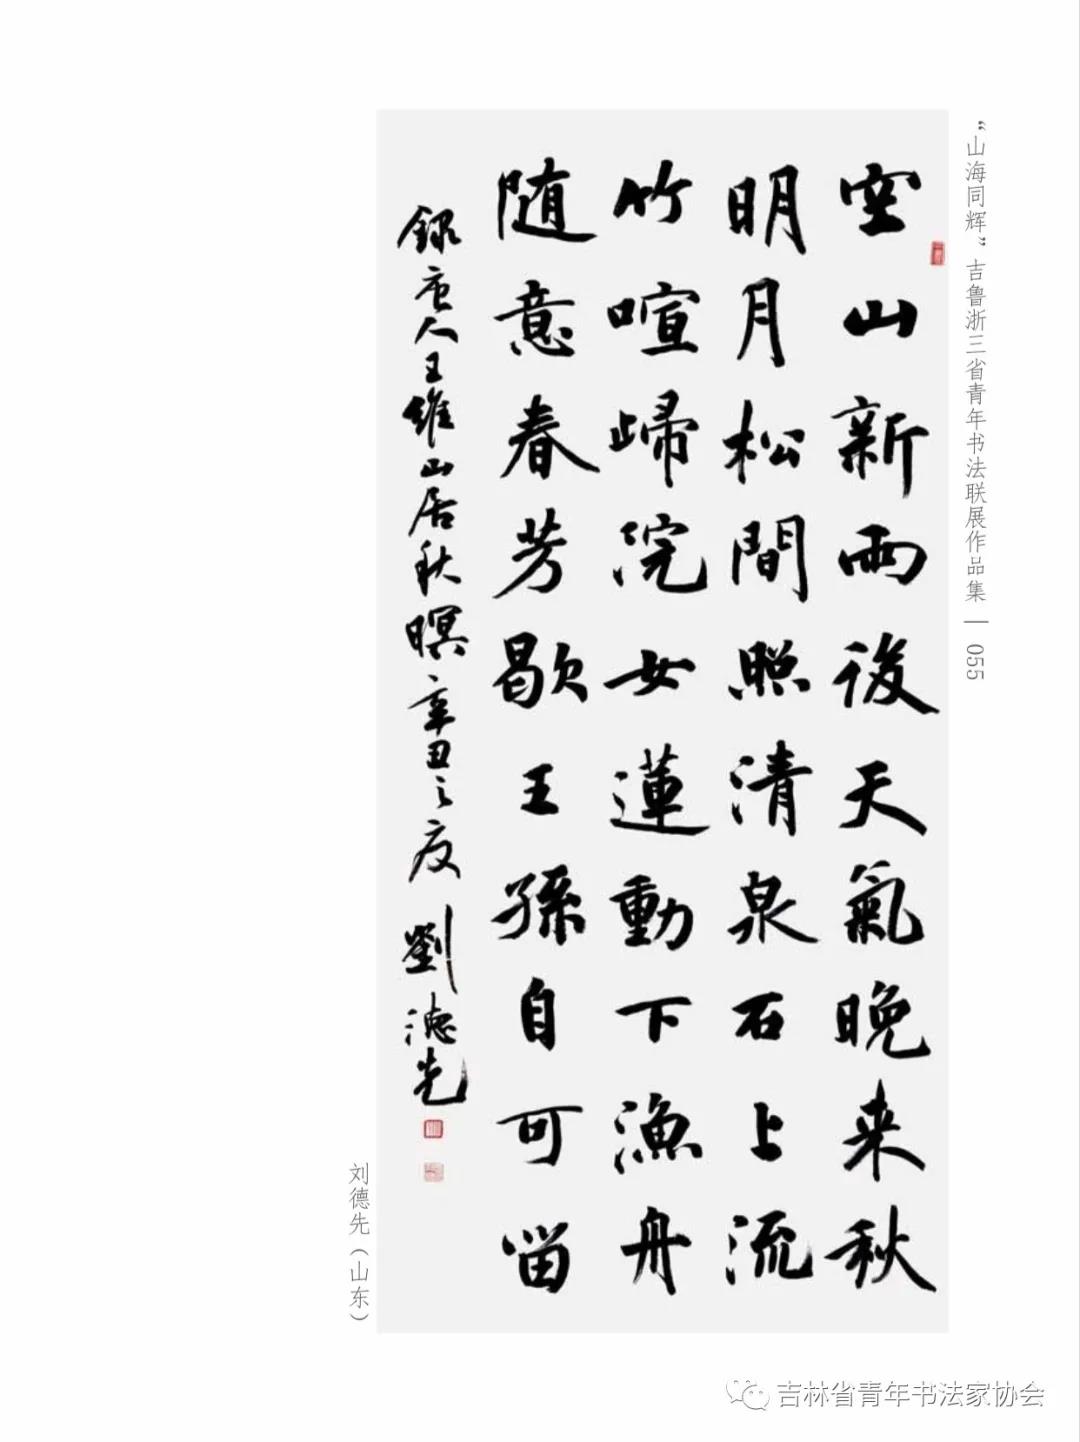 “山海同辉”吉鲁浙三省青年书法联展作品集 | 055
空山新雨後天氣晚来秋
明月松間照清泉石上流
竹喧歸浣女蓮動下漁舟
随意春芳歇王孫自可留
録唐人王維山居秋暝辛丑之夏劉德先
刘德先（山东）
吉林省青年书法家协会